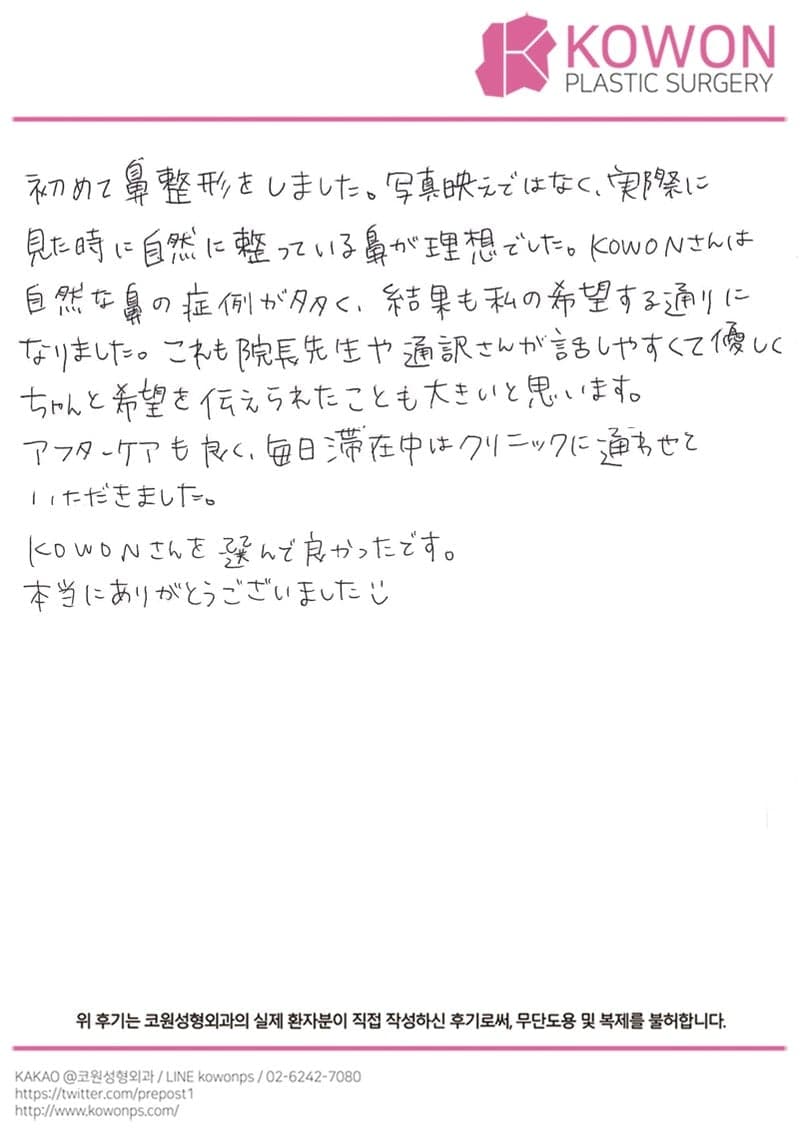 KOWON
PLASTIC SURGERY
初めて鼻整形をしました。写真映えではなく、実際に
見た時に自然に整っている鼻が理想でした。KOWONさんは
自然な鼻の症例が多く、結果も私の希望する通りに
なりました。これも院長先生や通訳さんが話しやすくて優しく
ちゃんと希望を伝えられたことも大きいと思います。
アフターケアも良く、毎日滞在中はクリニックに通わせて
いただきました。
KOWONさんを選んで良かったです。
本当にありがとうございました
위 후기는 코원성형외과의 실제 환자분이 직접 작성하신 후기로써, 무단도용 및 복제를 불허합니다.
KAKAO @코원성형외과 / LINE kowonps / 02-6242-7080
https://twitter.com/prepost1
http://www.kowonps.com/